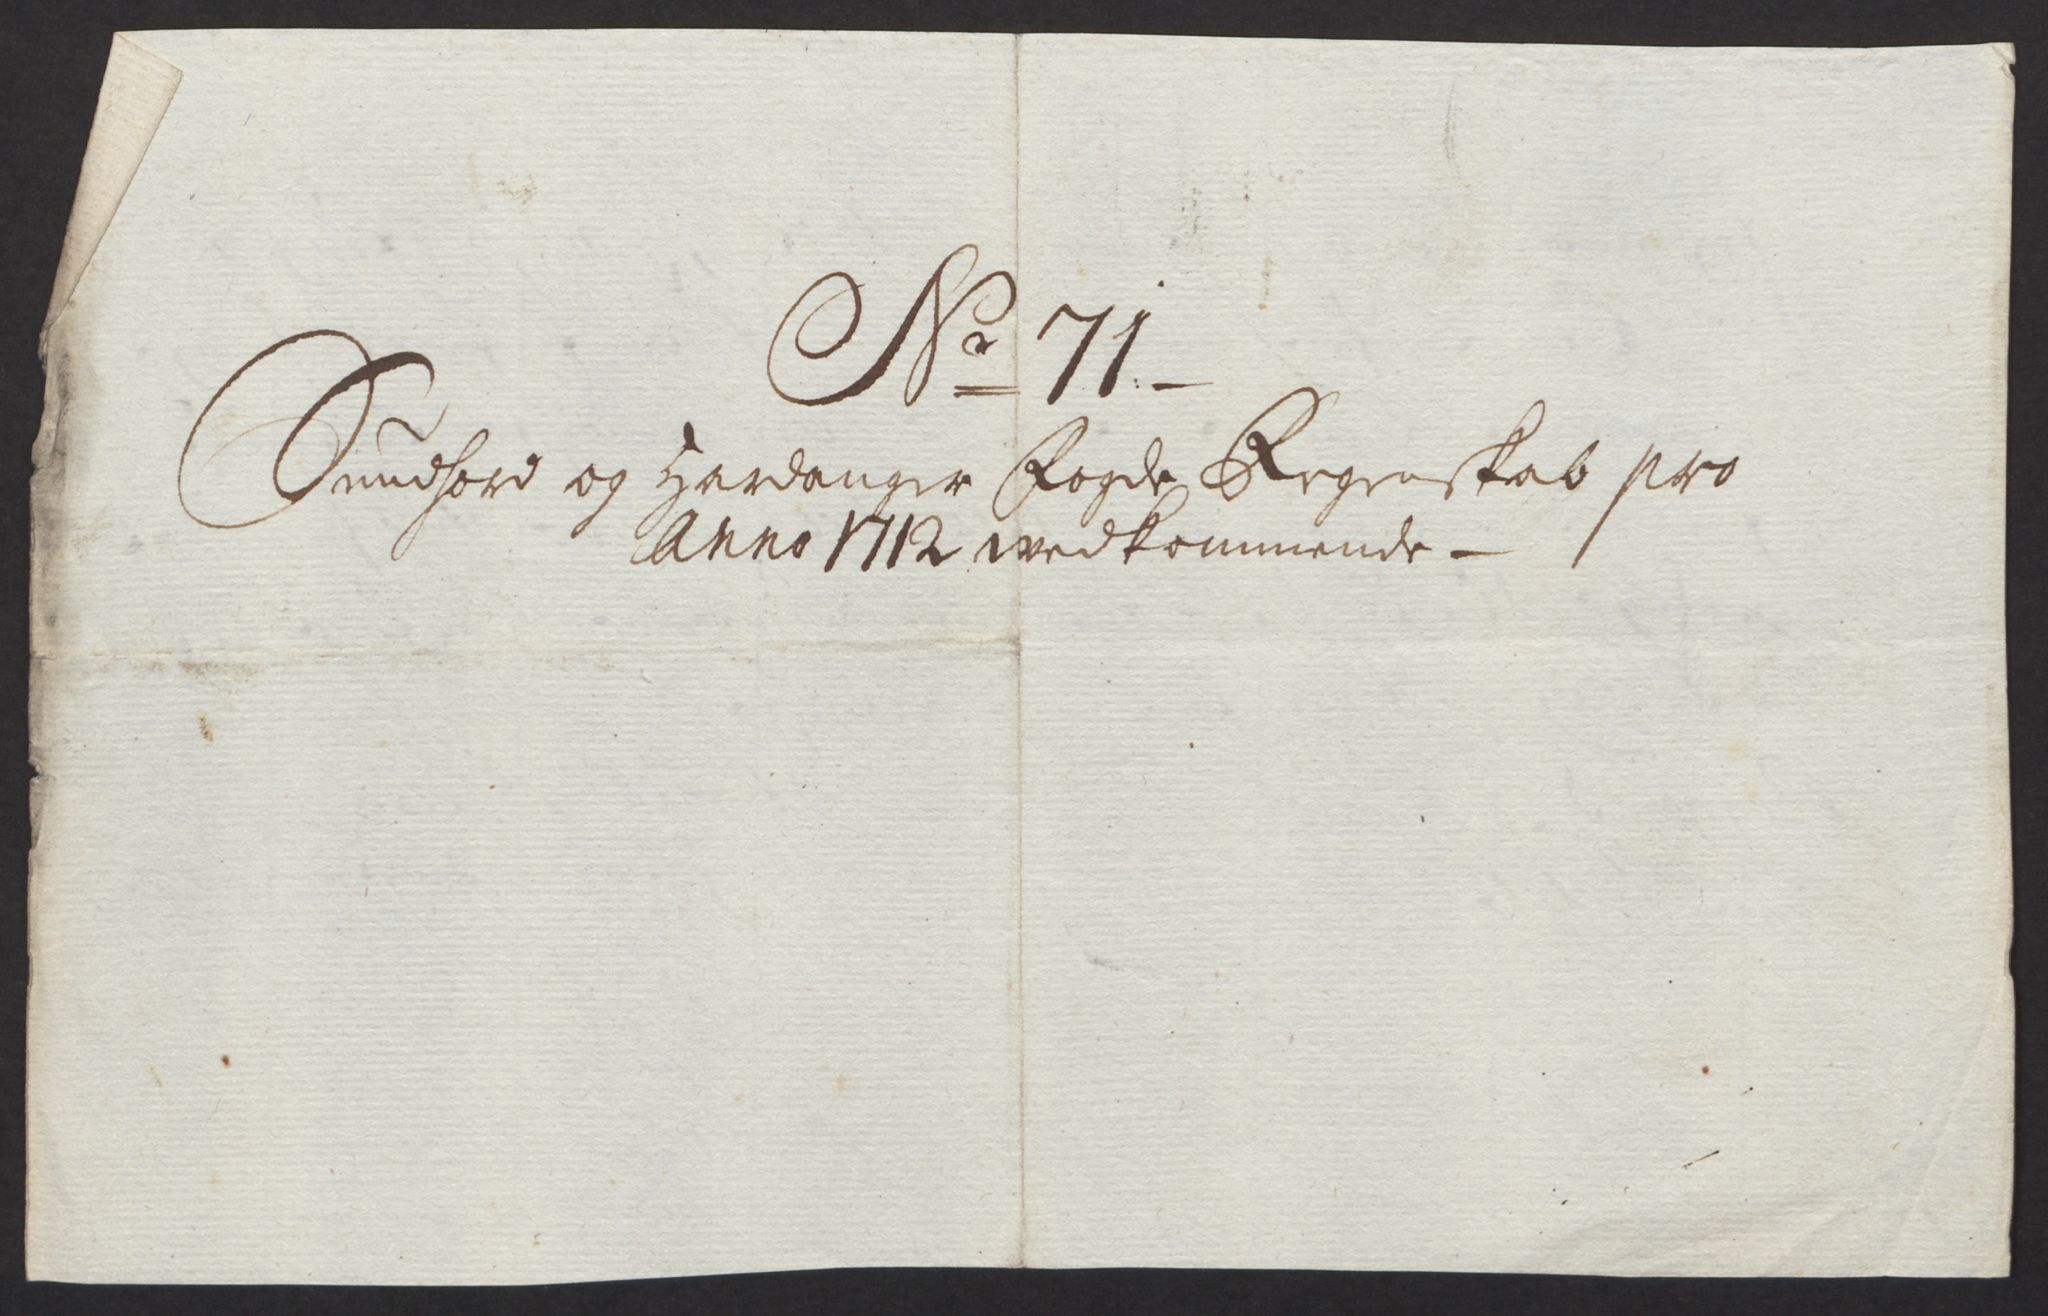 No 71.-
Sundhord og Hardanger Fogde Regenskab pro
Anno 1712 vedkommende -